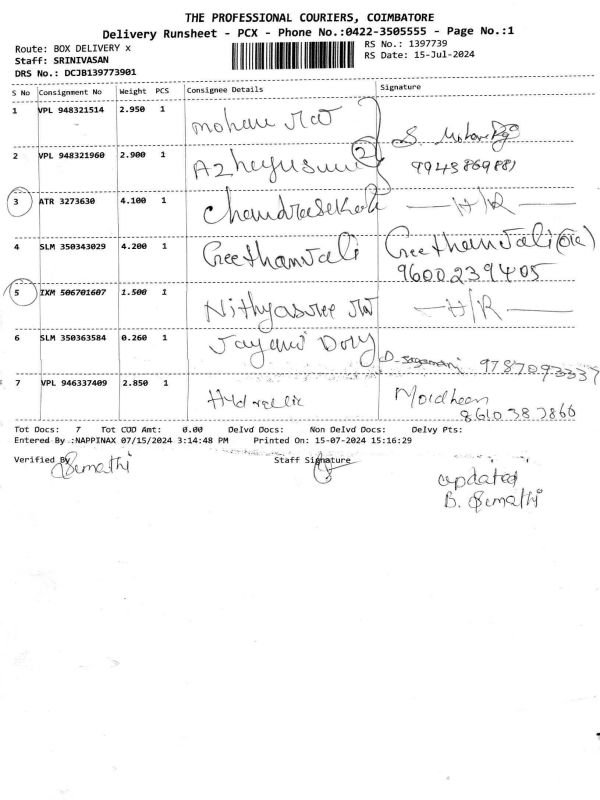 THE PROFESSIONAL COURIERS, COIMBATORE
Delivery Runsheet - PCX - Phone No.:0422-3505555 - Page No.:1
Route: BOX DELIVERY x
RS No.: 1397739
Staff: SRINIVASAN
RS Date: 15-Jul-2024
DRS No.: DCJB139773901
S No Consignment No Weight PCS Consignee Details Signature
1 VPL 948321514 2.950 1 mohan
2 VPL 948321960 2.900 1 2 S. Mohan
3 ATR 3273630 4.100 1 Chandrasekar H/R
4 SLM 350343029 4.200 1 Geethanjali Geethanjali
9600239405
5 IXM 506701607 1.500 1 Nithyasree H/R
6 SLM 350363584 0.260 1 9787093337
7 VPL 946337409 2.850 1 Moidheen
8610382866
Tot Docs: 7 Tot COD Amt: 0.00 Delvd Docs: Non Delvd Docs: Delvy Pts:
Entered By :NAPPINAX 07/15/2024 3:14:48 PM Printed On: 15-07-2024 15:16:29
Verified By Staff Signature
Sumathi
updated
B. Sumathi